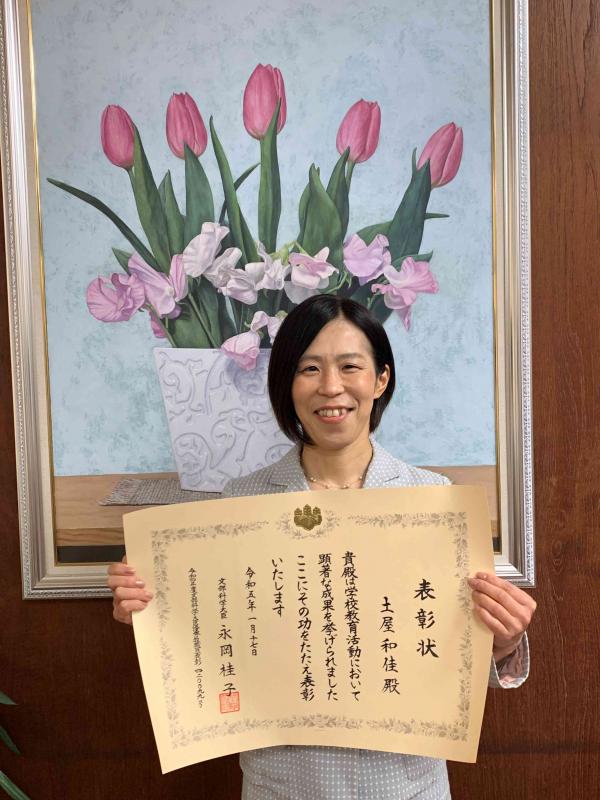 表彰状
土屋和佳殿
貴殿は学校教育活動において
顕著な成果を挙げられました
ここにその功をたたえ表彰
いたします
令和五年一月十七日
文部科学大臣 永岡桂子